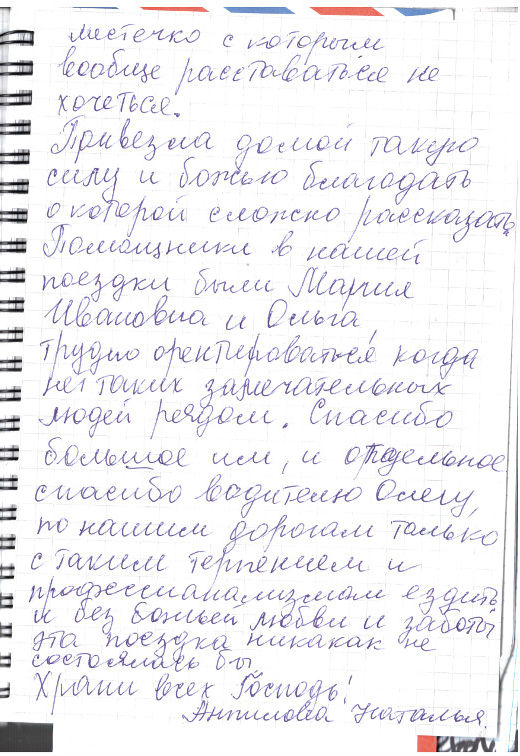 местечко с которым
вообще расставаться не
хочеться.
Привезла домой такую
силу и божью благодать
о которой сложно рассказать.
Помощники в нашей
поездки были Мария
Ивановна и Ольга,
трудно орентироваться когда
нет таких замечательных
людей рядом. Спасибо
большое им, и отдельное
спасибо водителю Олегу,
по нашим дорогам только
с таким терпением и
профессианализмом ездить
и без божьей любви и заботы
эта поездка никакак не
состоялась бы
Храни всех Господь!
Антилова Наталья.